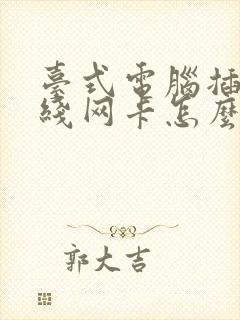 臺式電腦插
綫网卡怎麽
郭大吉